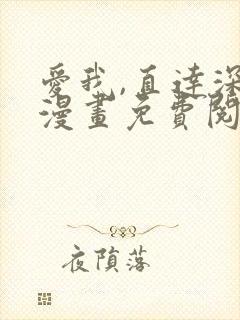 愛我,直達深
漫畫免費閱
夜隕落